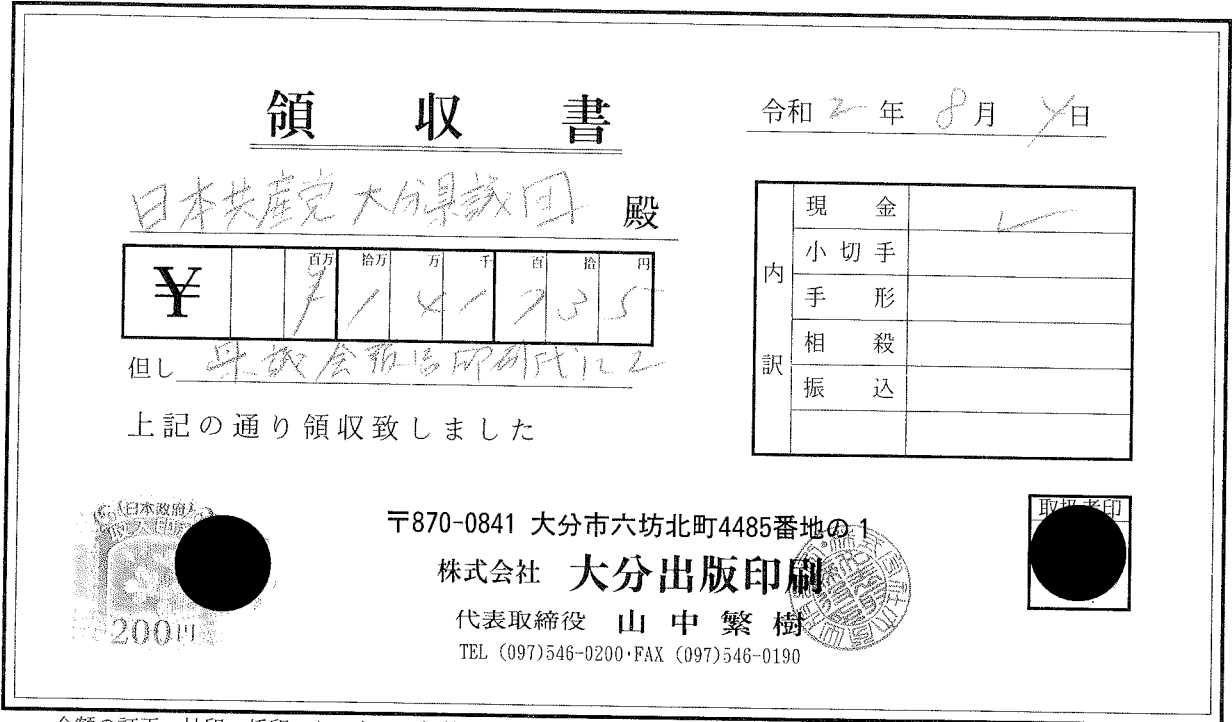 領収書
令和 2 年 8月 4日
日本共産党大分県議団 殿
¥ 百万 拾万 万 千 百 拾 円
¥1141735
但し 県議会報告印刷代にて
上記の通り領収致しました
内訳
現金 ✓
小切手
手形
相殺
振込
日本政府
200円
〒870-0841 大分市六坊北町4485番地の1
株式会社 大分出版印刷
代表取締役 山中繁樹
TEL (097)546-0200・FAX (097)546-0190
取扱者印